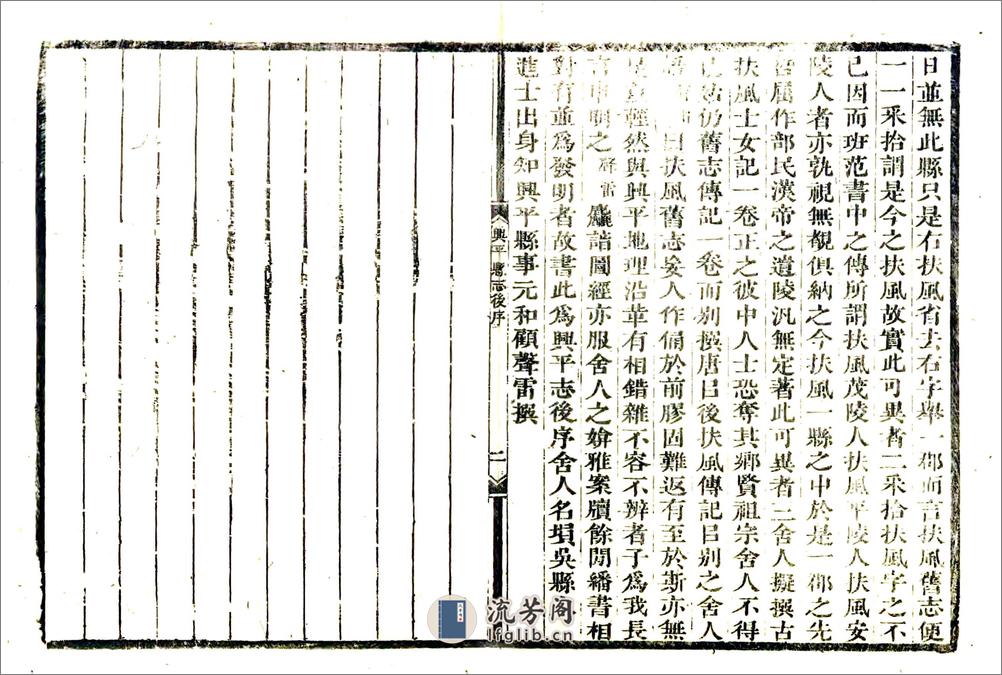 日並無此縣只是右扶風省去右字舉一郡而言扶風舊志便
一一采拾謂是今之扶風故實此可異者二采拾扶風字之不
已因而班范書中之傳所謂扶風茂陵人扶風平陵人扶風安
陵人者亦孰視無覩俱納之今扶風一縣之中於是一郡之先
屬作部民漢帝之遺陵汎無定著此可異者三舍人擬撰古
扶風士女記一卷正之彼中人士恐奪其鄉賢祖宗舍人不得
已姑仍舊志傳記一卷而别撰唐㠯後扶風傳記㠯别之舍人
曰扶風舊志妄人作俑於前膠固難返有至於斯亦無
輕然與興平地理沿革有相錯雜不容不辨者子爲我長
言申明之聲雷麤諳圖經亦服舍人之媕雅案牘餘閒繙書相
對有並爲發明者故書此爲興平志後序舍人名塤吳縣人
進士出身知興平縣事元和顧聲雷撰
興平縣志後序
二
流芳阁
lfglib.cn